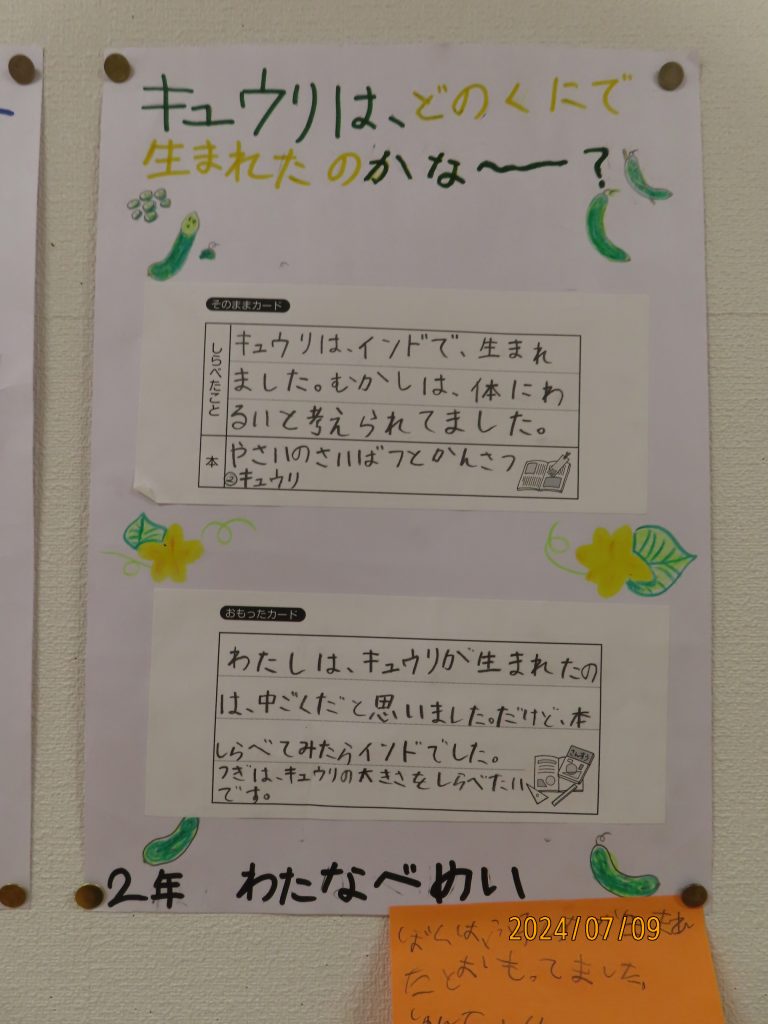 キュウリは、どのくにで
生まれたのかな〜？
そのままカード
しらべたこと
キュウリは、インドで、生まれ
ました。むかしは、体にわ
るいと考えられてました。
本
やさいのさいばつとかんさつ
②キュウリ
おもったカード
わたしは、キュウリが生まれたの
は、中ごくだと思いました。だけど、本
しらべてみたらインドでした。
つぎは、キュウリの大きさをしらべたい
です。
さんすう
2年 わたなべめい
ぼくは、
2024/07/09
たとおもってました。